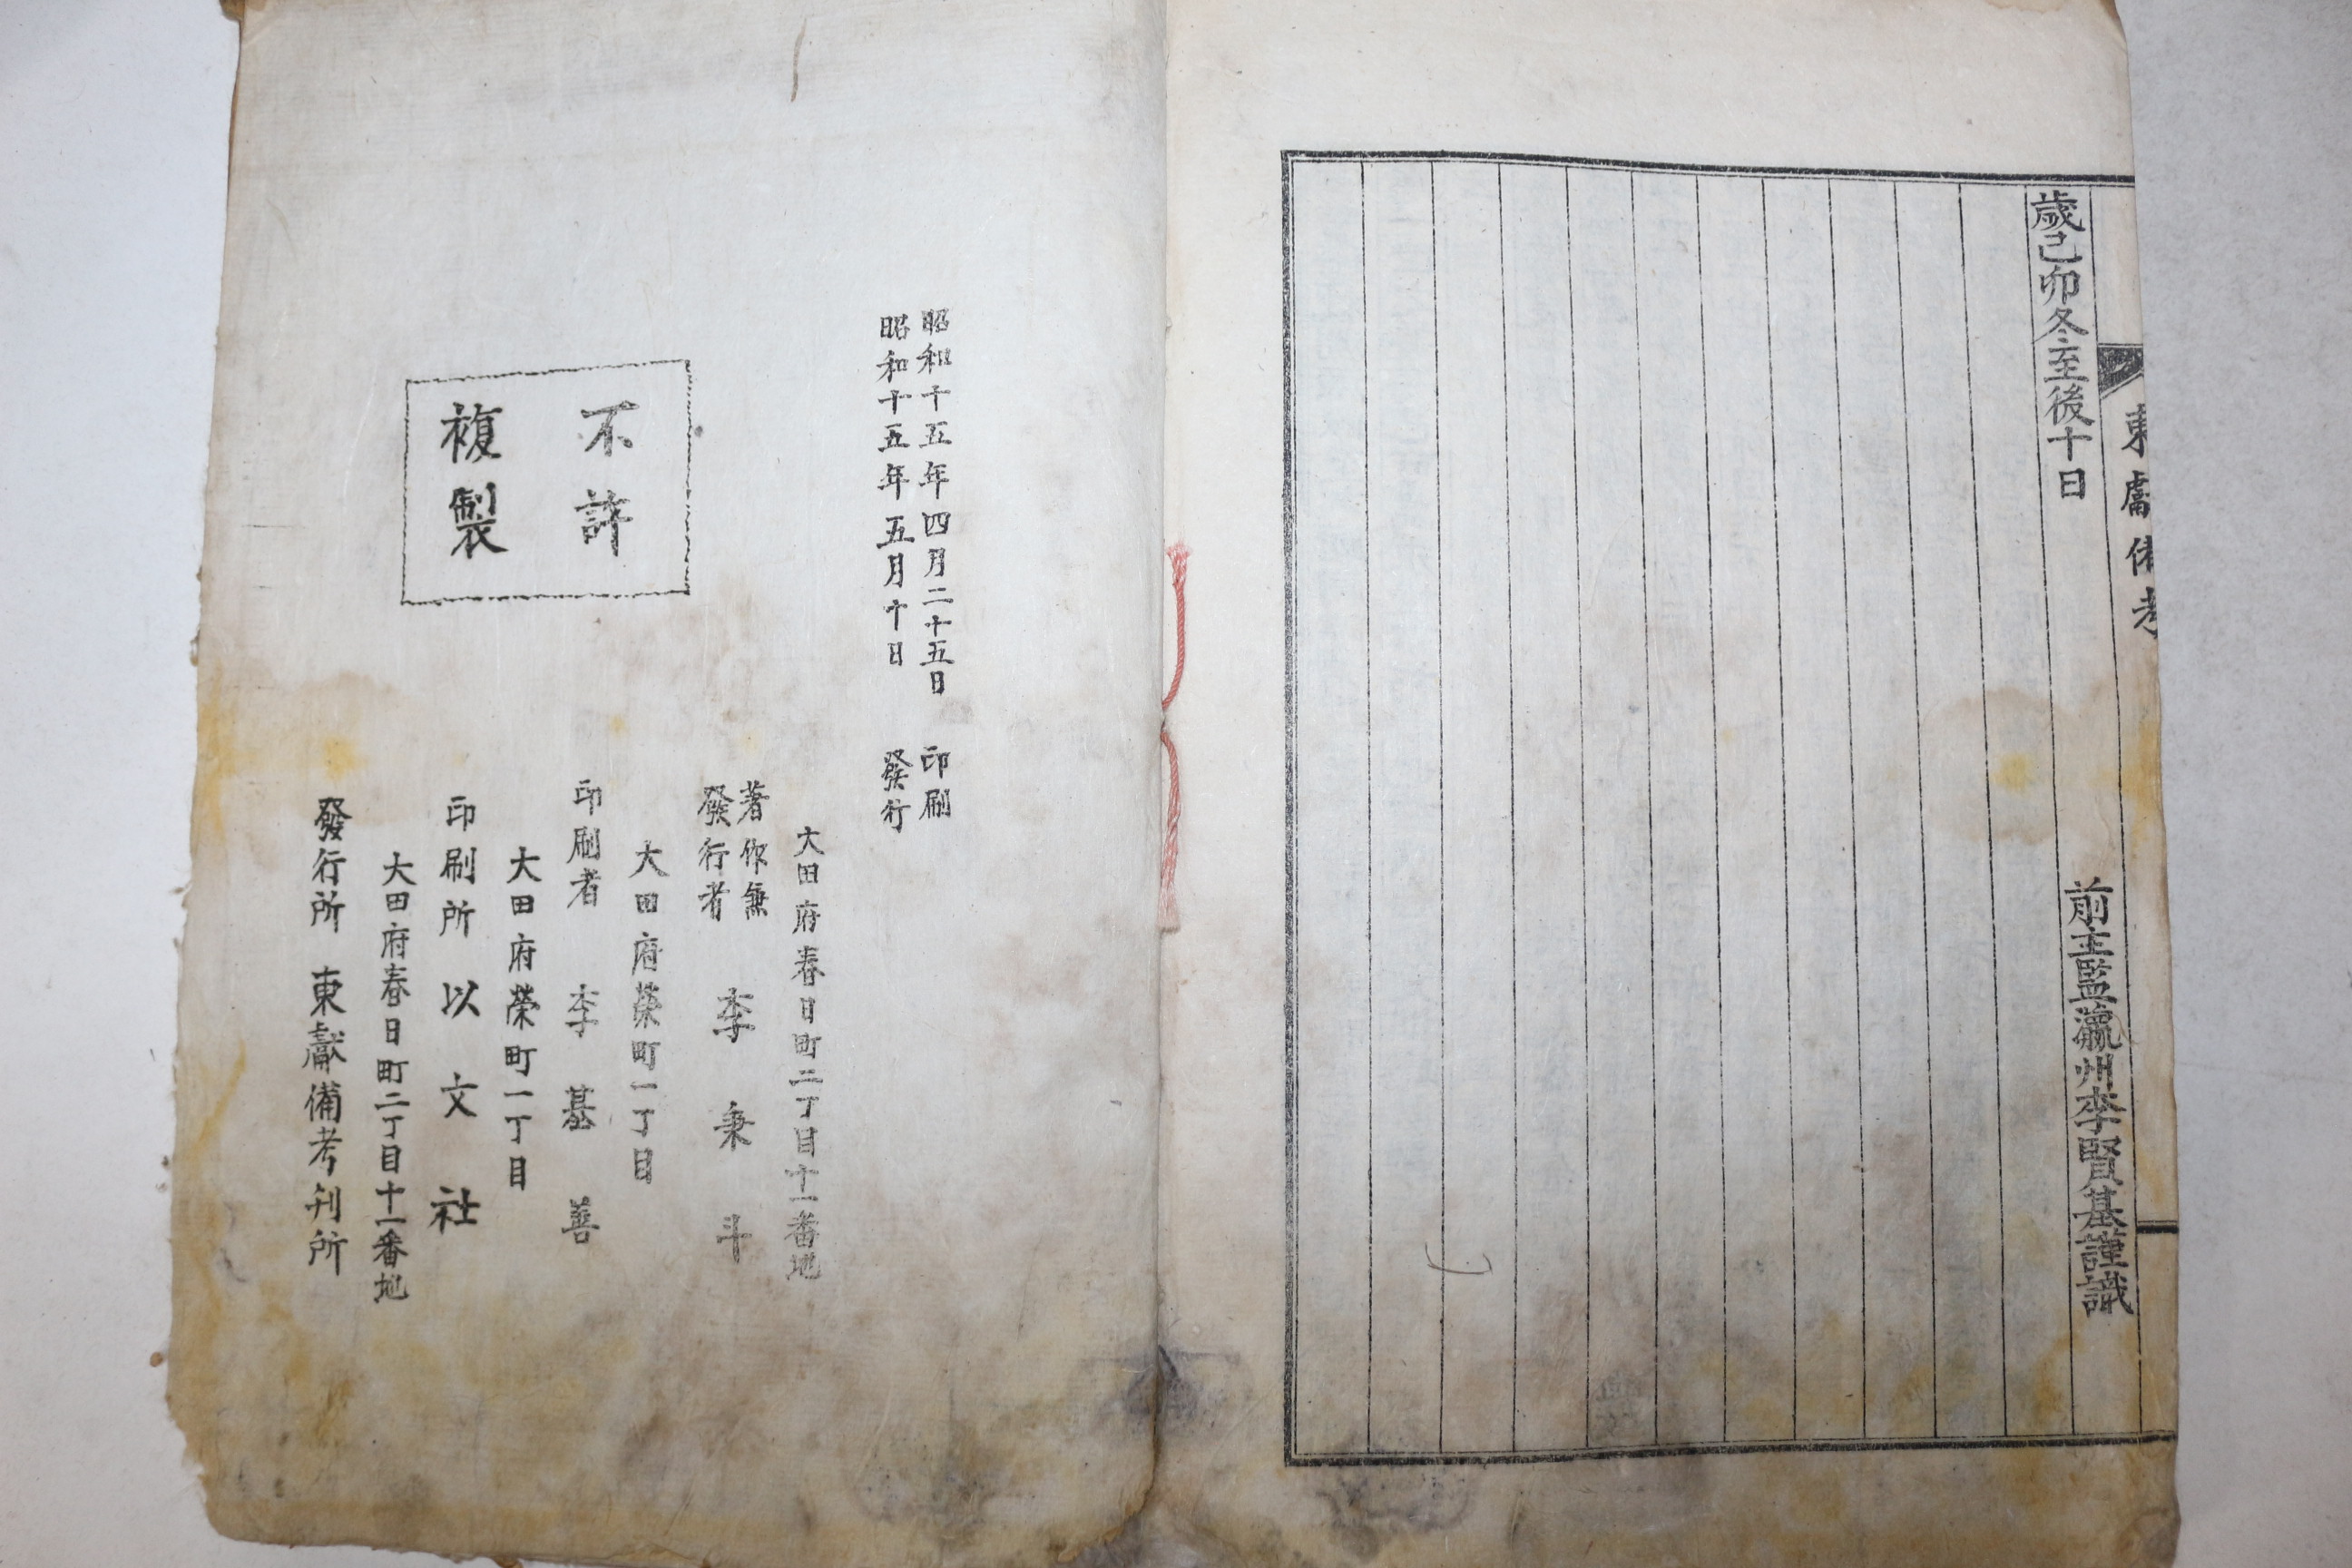 東獻備考
歲己卯冬至後十日
前主監瀛州李賢基謹識
昭和十五年四月二十五日 印刷
昭和十五年五月十日 發行
大田府春日町二丁目十一番地
著作無
發行者 李秉斗
大田府榮町一丁目
印刷者 李基善
大田府榮町一丁目
印刷所 以文社
大田府春日町二丁目十一番地
發行所 東獻備考刊所
不許
複製